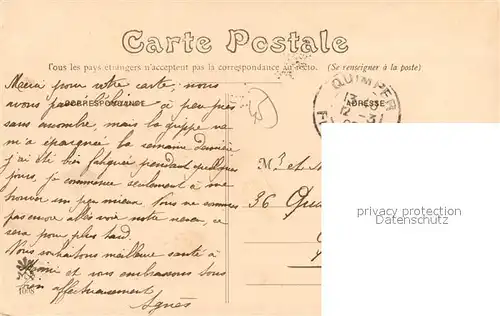 Carte Postale
Tous les pays étrangers n'acceptent pas la correspondance au recto. (Se renseigner à la poste)
CORRESPONDANCE
ADRESSE
QUIMPER
Merci pour votre carte; nous
avons à peu près
sans encombre, mais la grippe ne
m'a épargnée la semaine dernière
j'ai été bien fatiguée pendant quelques
jours, je commence seulement à me
trouver un peu mieux. Nous ne sommes
pas encore allés voir notre neveu, ce
sera pour plus tard.
Nous souhaitons meilleure santé à
et vous embrassons tous
bien affectueusement
Agnès
Mr et
36 Qua
privacy protection
Datenschutz